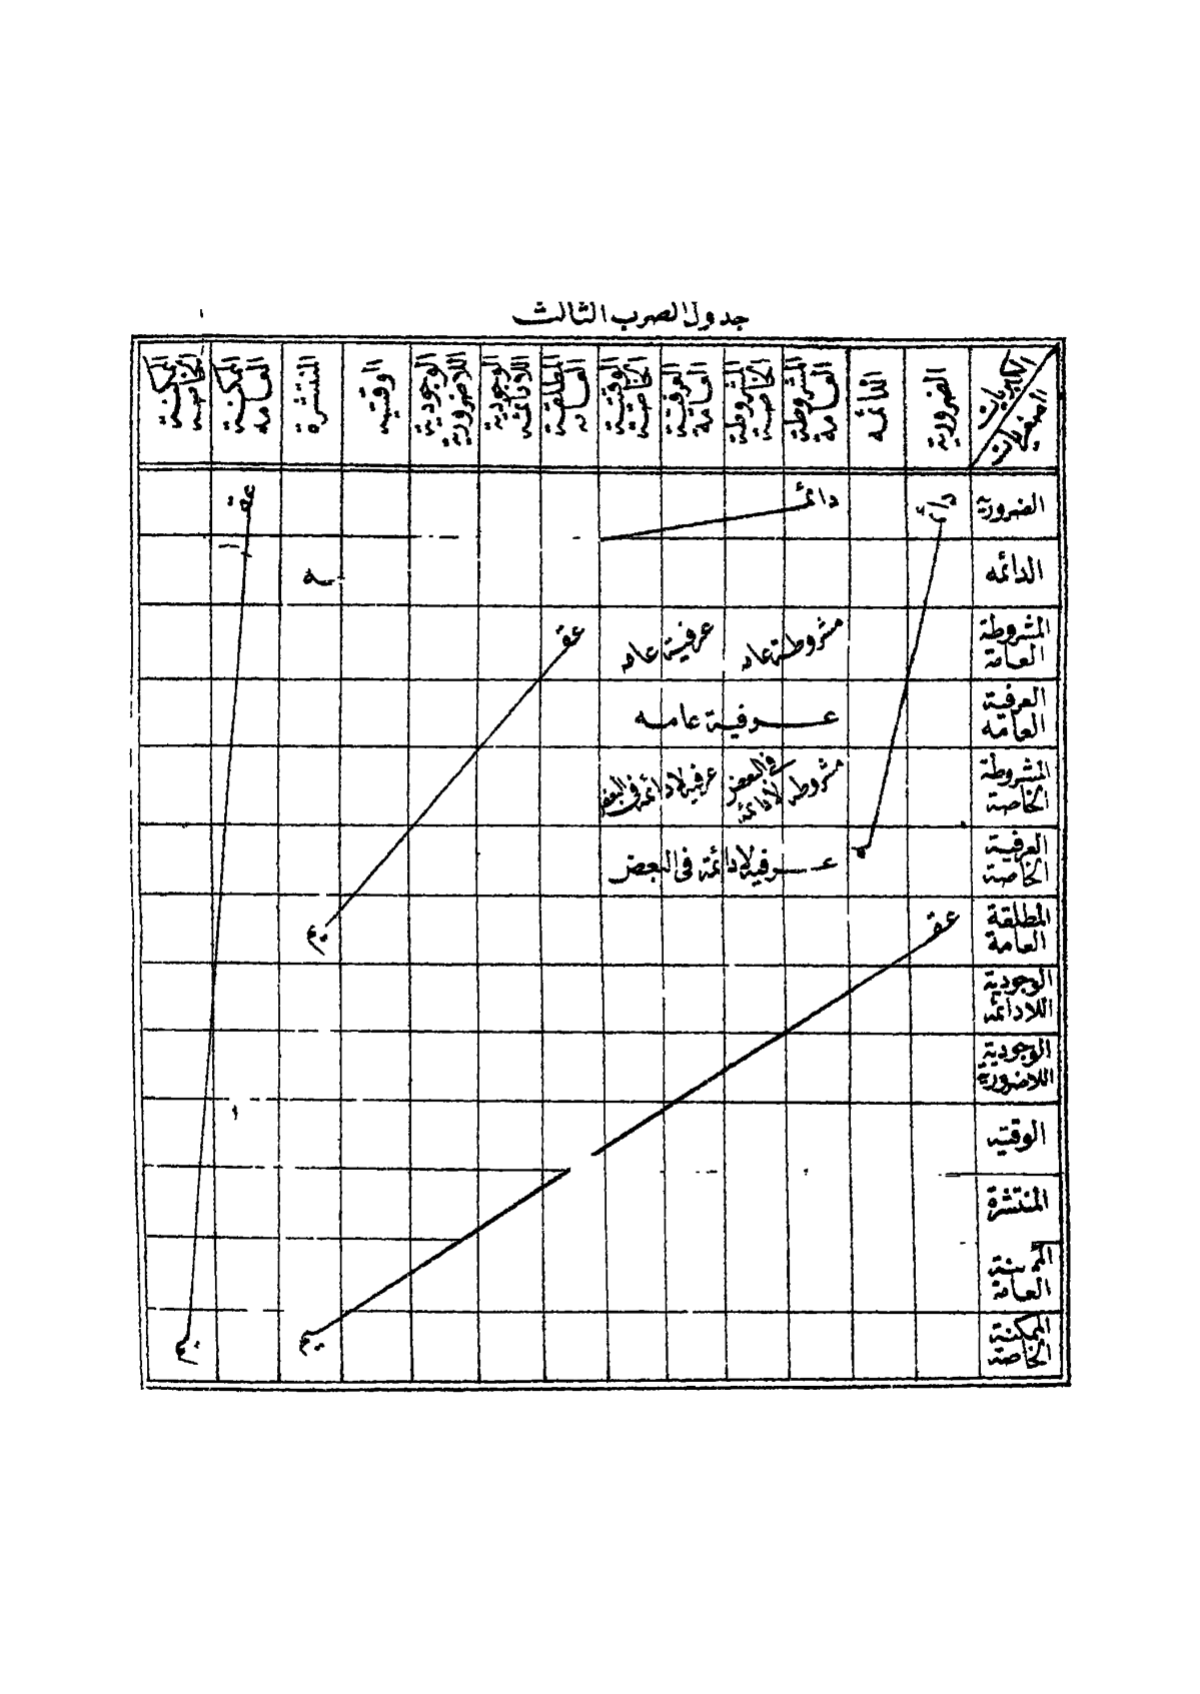 جدول الضرب الثالث
الكبريات
الصغريات
الضرورية
الدائمه
المشروطة العامة
المشروطة الخاصة
العرفية العامة
المطلقة العامه
الوجودية اللادائمة
الوجودية اللاضرورية
الوقتيه
المنتشرة
الممكنة العامه
الممكنة الخاصة
الضرورية
دائمه
عقـ
الدائمه
المشروطة العامة
مشروطة عامه
عرفية عامه
عقـ
العرفية العامه
عـــرفية عامـه
المشروطة الخاصة
مشروطة لادائمة في البعض
عرفية لا دائمة في البعض
العرفية الخاصة
عـــرفية لا دائمة في البعض
المطلقة العامة
عقـ
يم
الوجودية اللادائمة
الوجودية اللاضرورية
الوقتيه
المنتشرة
العامة
الممكنة الخاصة
يم